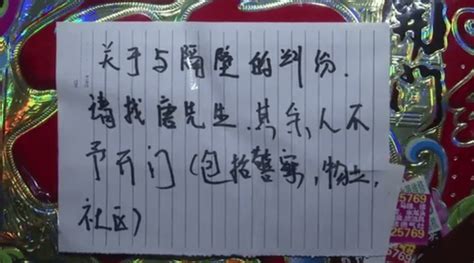 关于与隔壁的纠纷.
请找唐先生.其余人不
予开门(包括警察,物业,
社区)
荆门
25769
25769